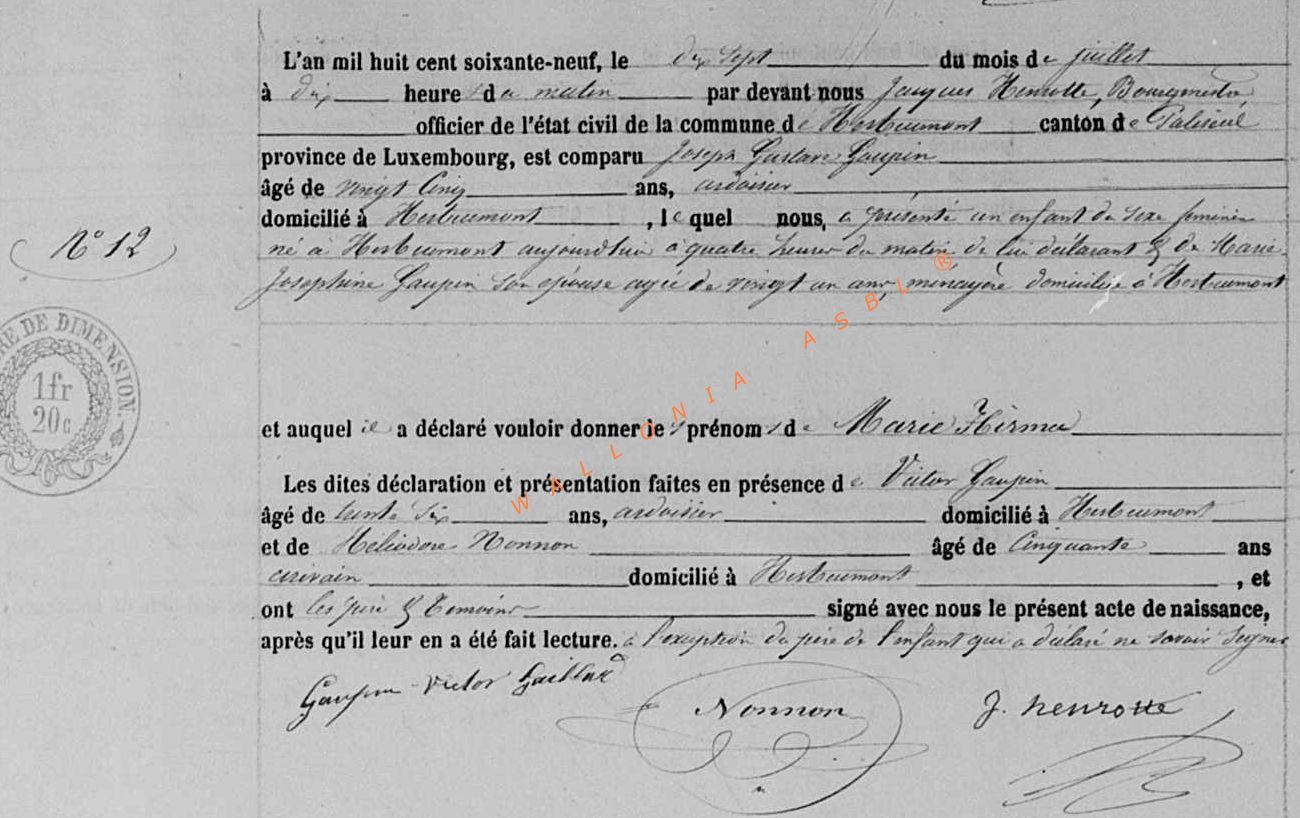 L'an mil huit cent soixante-neuf, le dix sept du mois de juillet
à dix heures du matin par devant nous Jacques Henrotte, Bourgmestre,
officier de l'état civil de la commune de Herbeumont canton de Paliseul
province de Luxembourg, est comparu Joseph Gustave Gaupin
âgé de vingt cinq ans, ardoisier
domicilié à Herbeumont, lequel nous, a présenté un enfant du sexe feminin
N° 12
né à Herbeumont aujourd'hui à quatre heures du matin de lui déclarant & de Marie
Josephine Gaupin son épouse agée de vingt un ans, ménagère domiciliée à Herbeumont
RE DE DIMENSION.
1fr
20c
et auquel il a déclaré vouloir donner les prénoms de Marie
Les dites déclaration et présentation faites en présence de Victor Gaupin
âgé de trente six ans, ardoisier domicilié à Herbeumont
et de Héliodore Nonnon âgé de cinquante ans
écrivain domicilié à Herbeumont, et
ont les père & temoins signé avec nous le présent acte de naissance,
après qu'il leur en a été fait lecture. à l'exception du père de l'enfant qui a déclaré ne savoir signer
Gaupin Victor Gaillard
Nonnon
J. Henrotte
WALLONIA ASBL ®